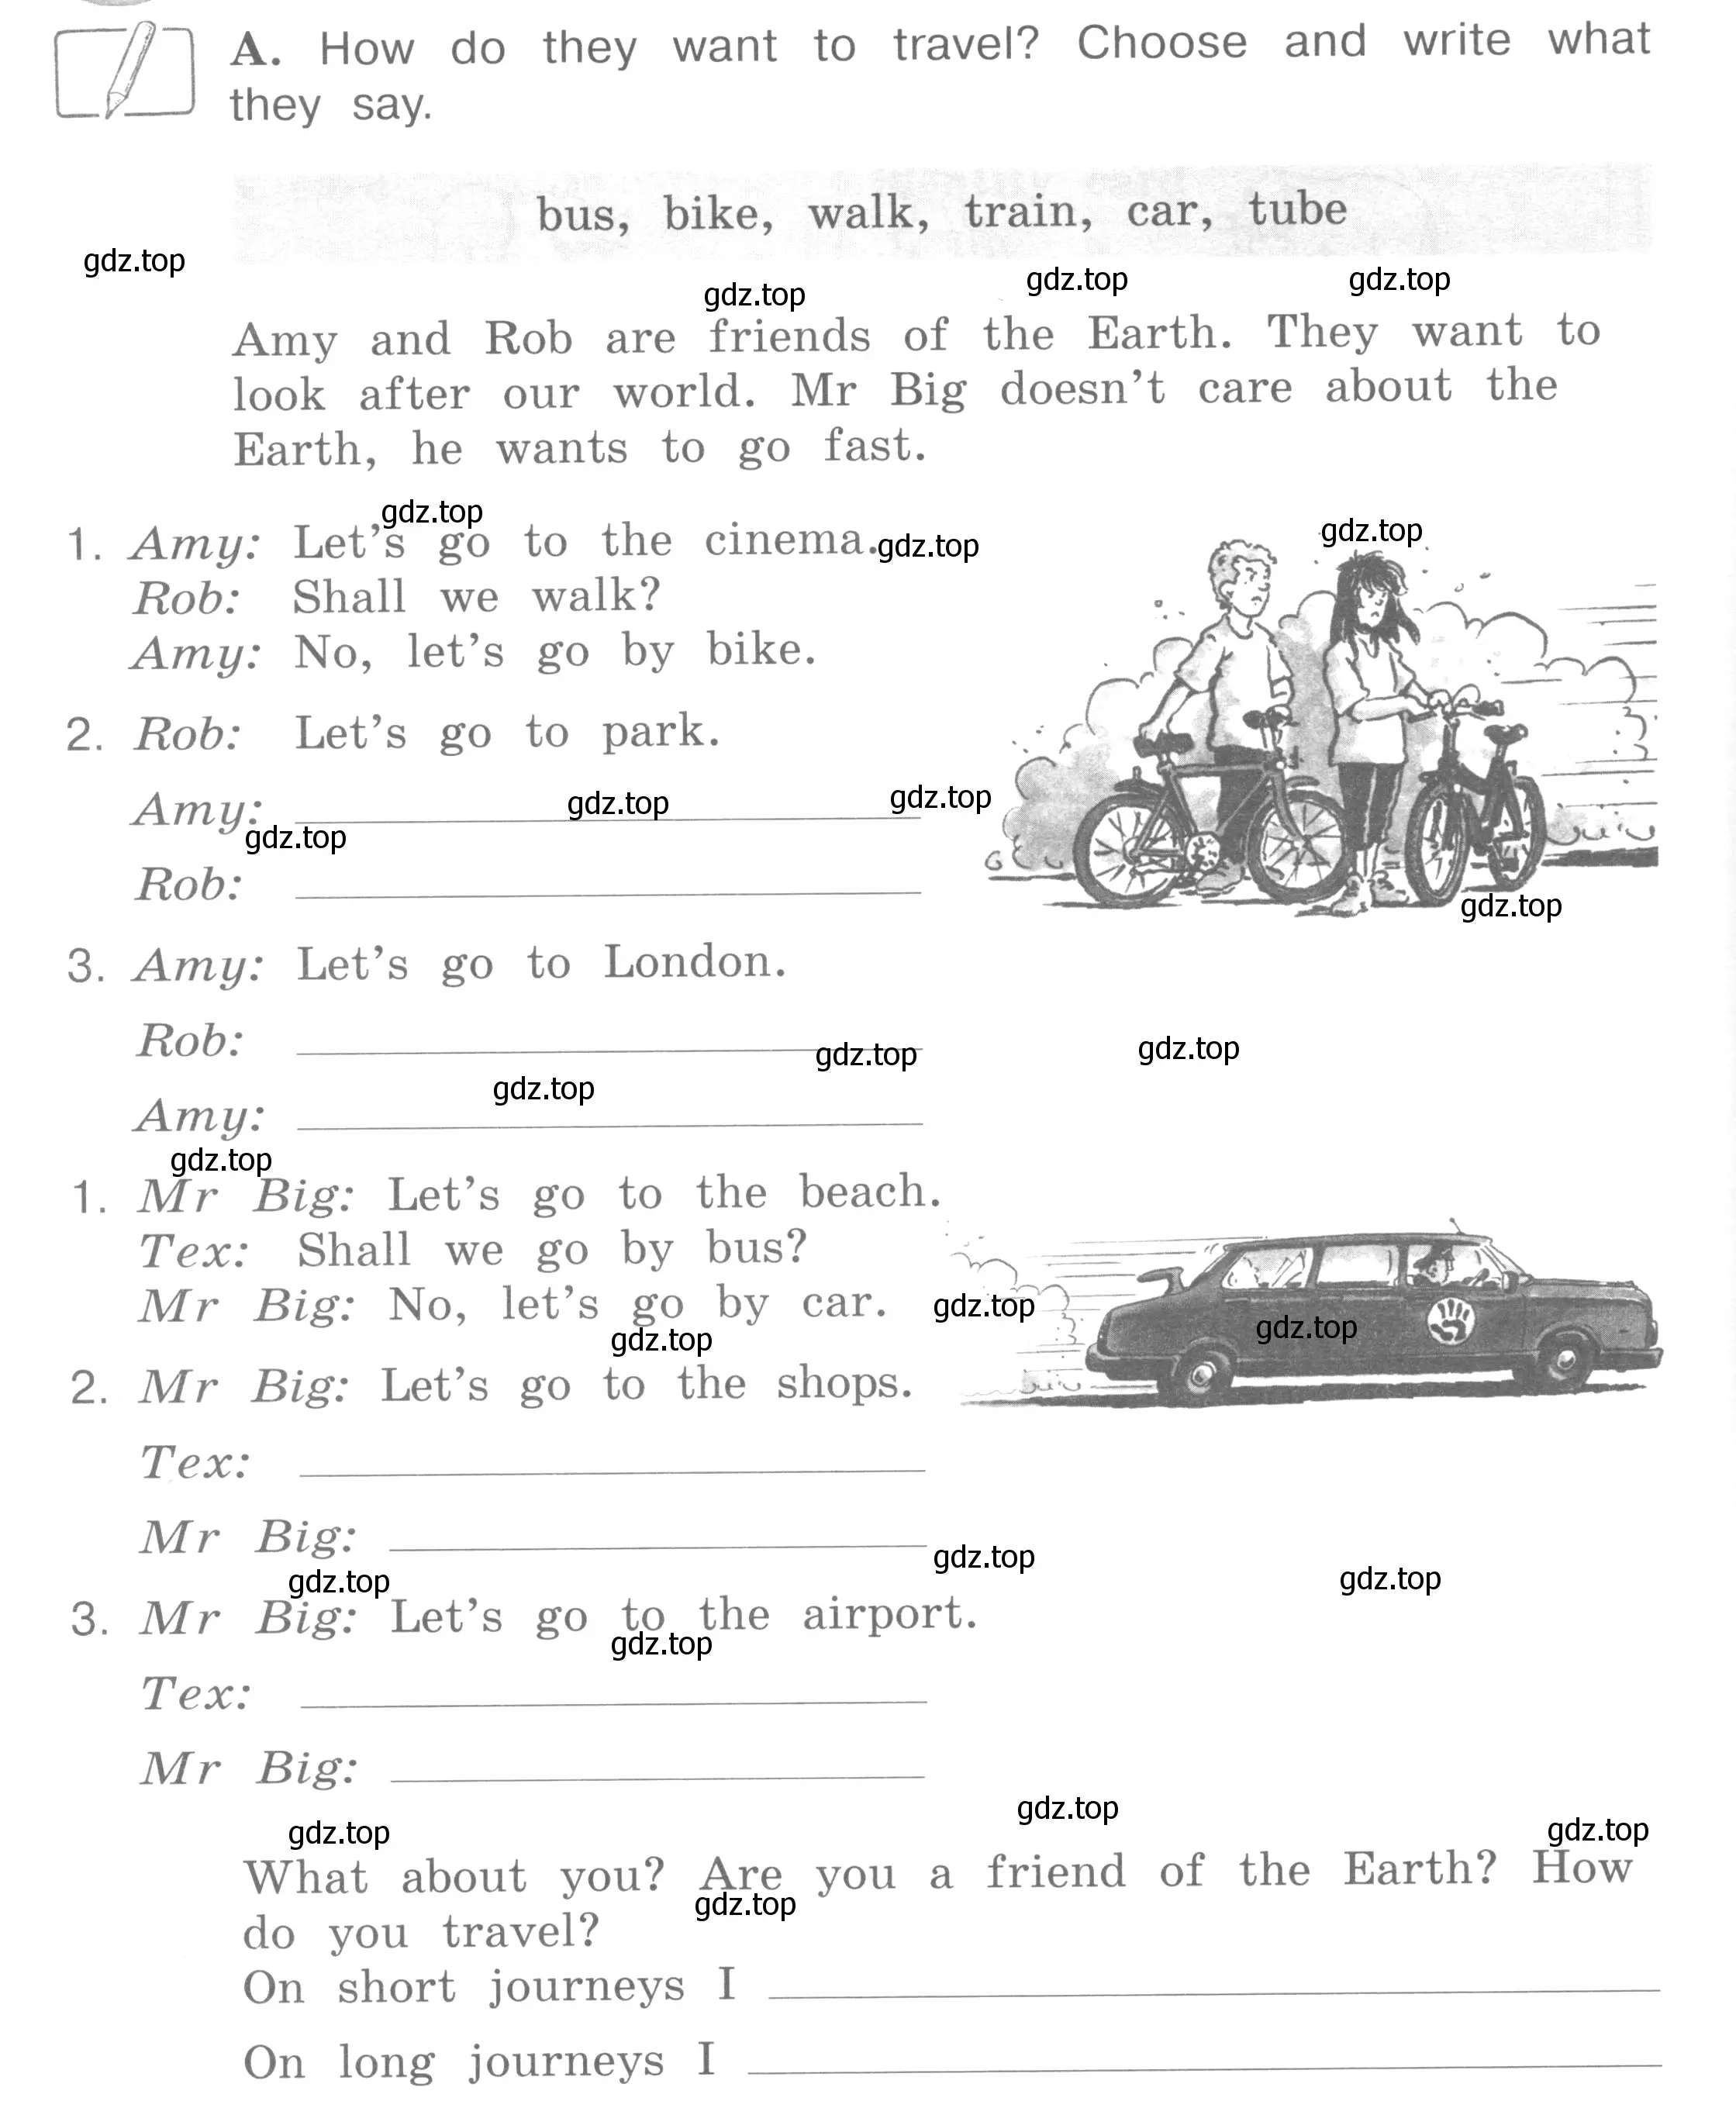 A. How do they want to travel? Choose and write what
they say.
bus, bike, walk, train, car, tube
gdz.top
gdz.top gdz.top gdz.top
Amy and Rob are friends of the Earth. They want to
look after our world. Mr Big doesn't care about the
Earth, he wants to go fast.
gdz.top gdz.top
1. Amy: Let's go to the cinema. gdz.top
Rob: Shall we walk?
Amy: No, let's go by bike.
2. Rob: Let's go to park.
Amy: gdz.top gdz.top
gdz.top
Rob:
gdz.top
3. Amy: Let's go to London.
Rob: gdz.top gdz.top
gdz.top
Amy:
gdz.top
1. Mr Big: Let's go to the beach.
Tex: Shall we go by bus?
Mr Big: No, let's go by car. gdz.top gdz.top
gdz.top
2. Mr Big: Let's go to the shops.
Tex:
Mr Big: gdz.top
gdz.top gdz.top
3. Mr Big: Let's go to the airport.
gdz.top
Tex:
Mr Big:
gdz.top gdz.top gdz.top
What about you? Are you a friend of the Earth? How
gdz.top
do you travel?
On short journeys I
On long journeys I